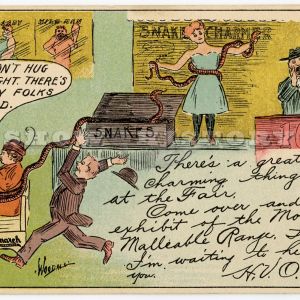 SNAKE CHARMER
N'T HUG
GHT. THERE'S
Y FOLKS
D.
SNAKES
There's a great
charming thing
at the Fair.
Come over and
exhibit of the Mo
Malleable Range.
I'm waiting to he
you. H.V.O.